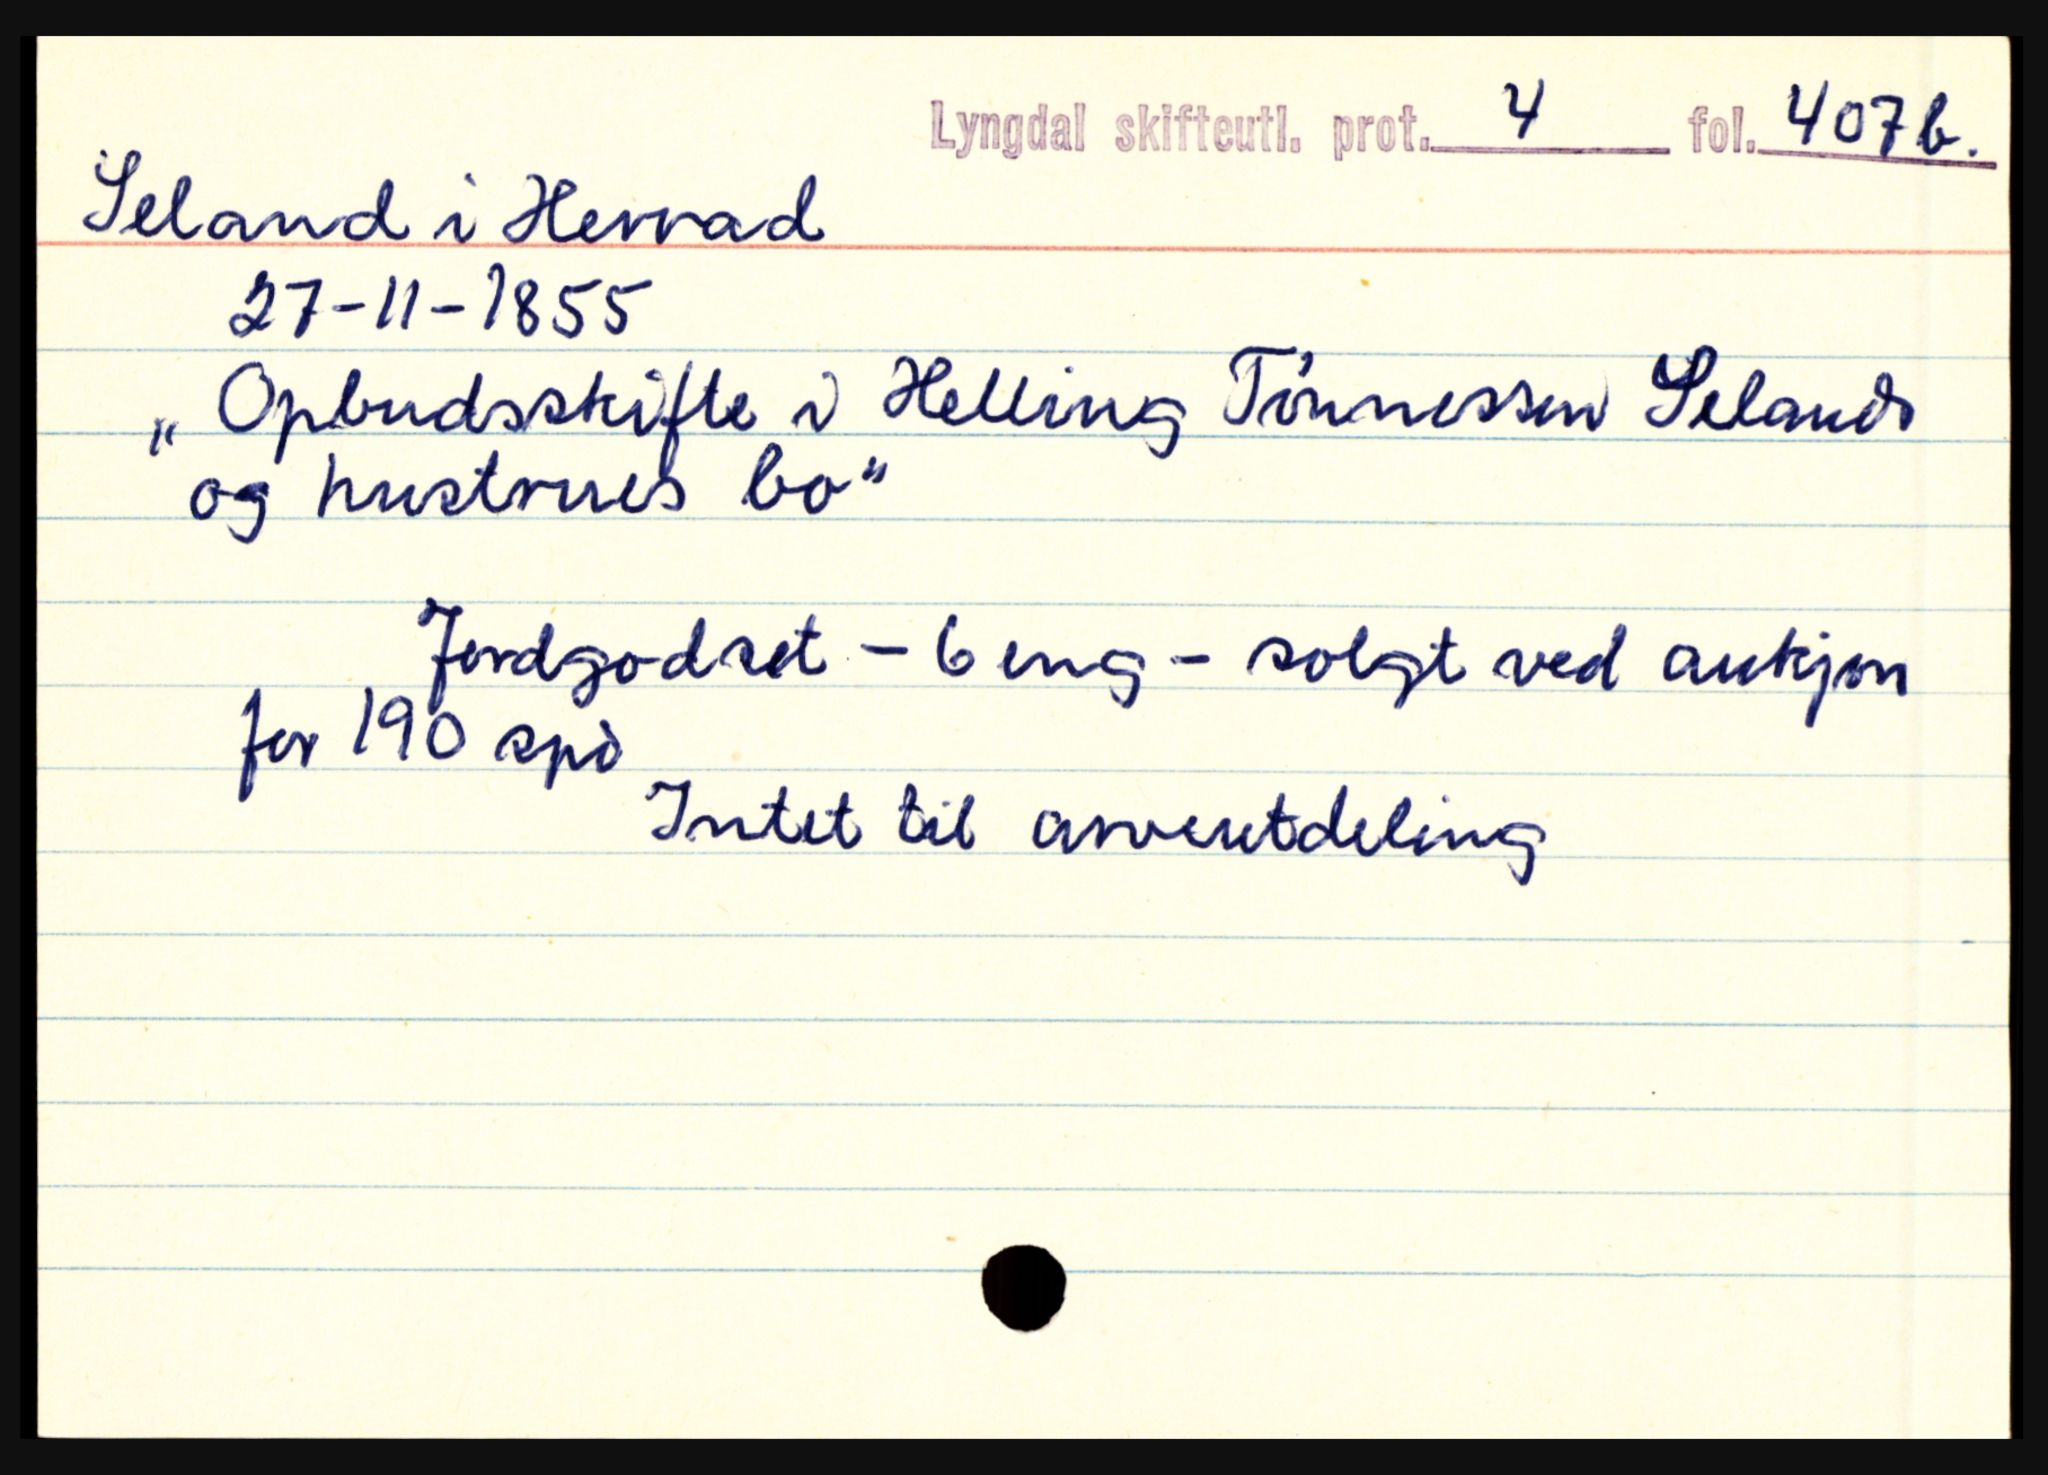 Lyngdal skifteutl. prot. 4 fol. 407b.
Seland i Herrad
27-11-1855
„Opbudsskifte i Helling Tönnessen Selands
og hustrues bo"
Jordgodset - 6 eng - solgt ved aukjon
for 190 spd
Intet til arveutdeling